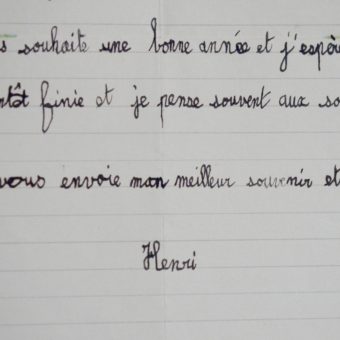 s souhaite une bonne année et j'espèr
ntôt finie et je pense souvent aux so
vous envoie mon meilleur souvenir et
Henri